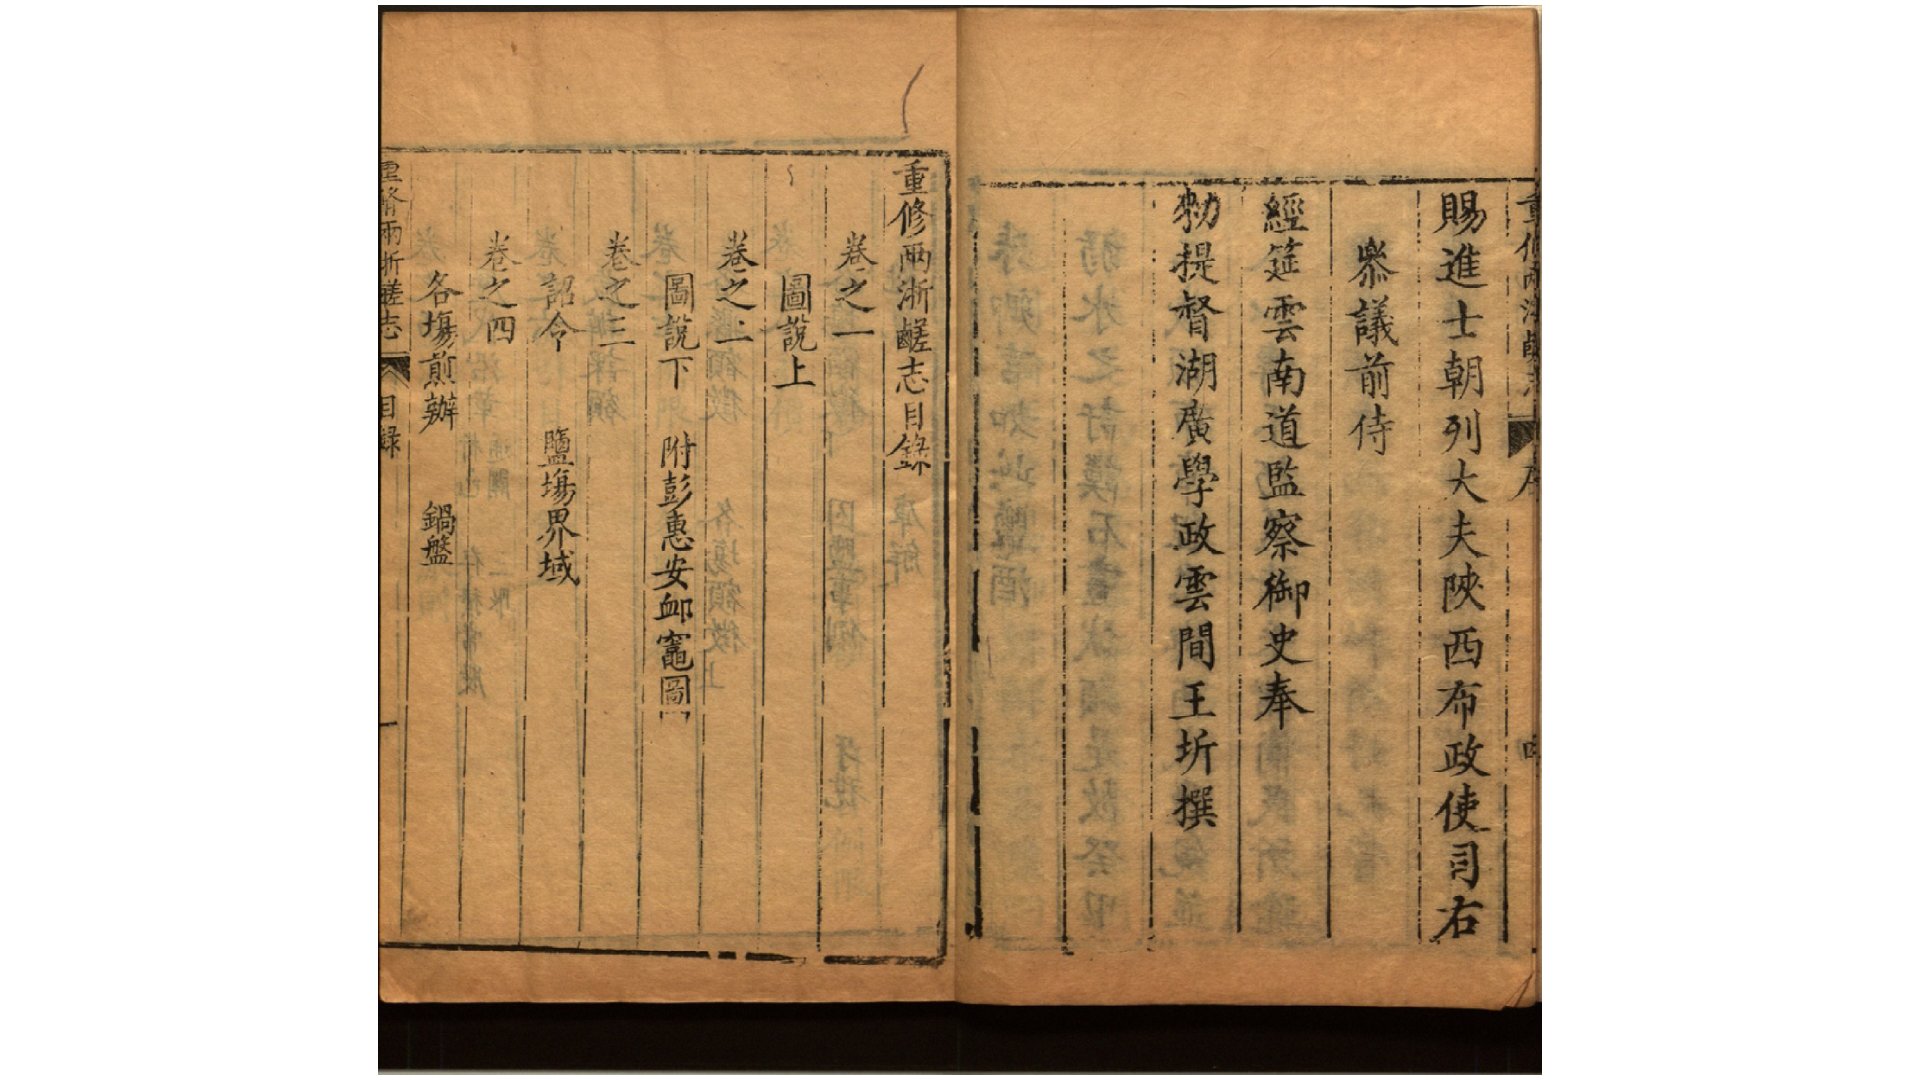 賜進士朝列大夫陝西布政使司右
叅議前侍
經筵雲南道監察御史奉
勑提督湖廣學政雲間王圻撰
重修兩浙鹺志目錄
卷之一
圖說上
卷之二
圖說下 附彭惠安邺竈圖
卷之三
詔令 鹽塲界域
卷之四
各塲煎辦 鍋盤
重脩兩浙鹺志 目錄 一